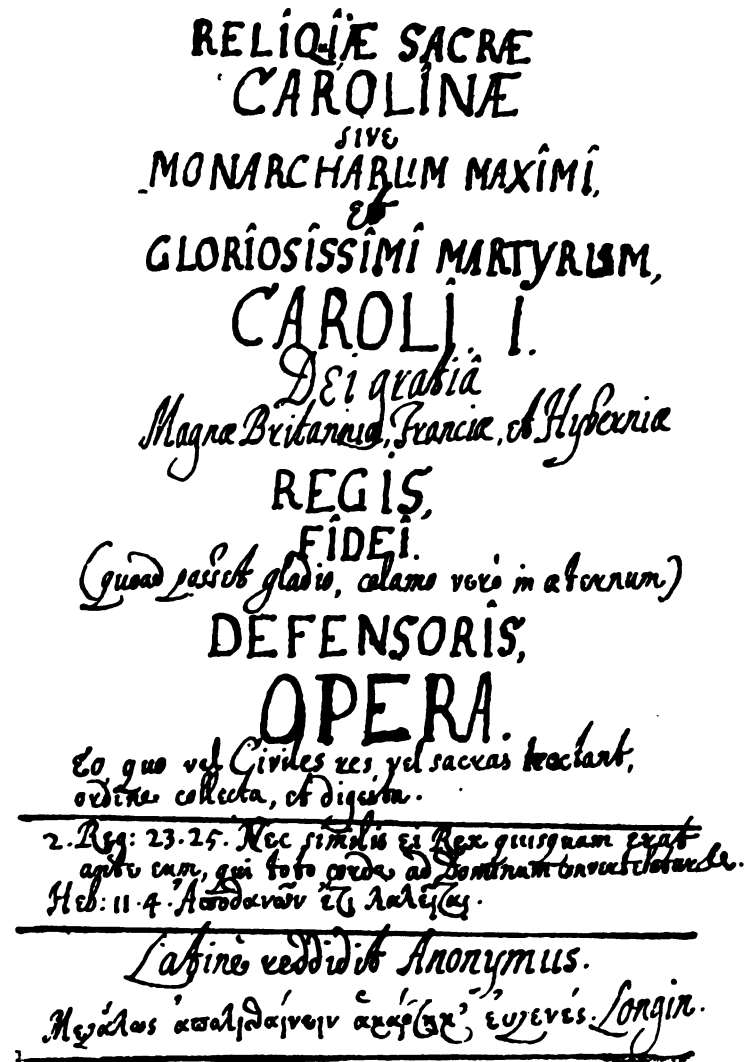 RELIQUIÆ SACRÆ
CAROLINÆ
SIVE
MONARCHARUM MAXIMI,
et
GLORIOSISSIMI MARTYRUM,
CAROLI. I.
Dei gratiâ
Magnæ Britanniæ, Franciæ, et Hyberniæ
REGIS,
FIDEI.
(quoad passet gladio, calamo verò in æternum)
DEFENSORIS,
OPERA.
Eo quo vel Civiles res vel sacras tractant,
ordine collecta, et digesta.
2. Reg: 23.25. Nec similis ei Rex quisquam erat
ante eum, qui toto corde ad Dominum
Heb: 11.4. Ἀποθανὼν ἔτι λαλεῖται.
Latinè reddidit Anonymus.
Longin.